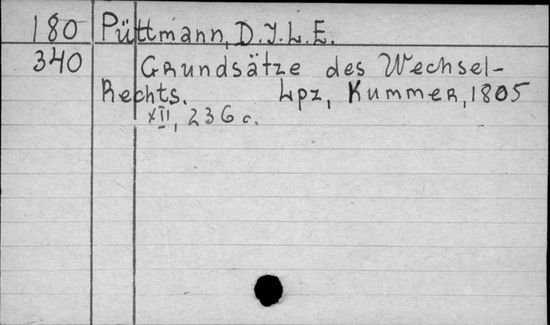 180 Püttmann, D.J.L.E.
340 Grundsätze des Wechsel-
Rechts. Lpz, Kummer, 1805
XII, 236 c.